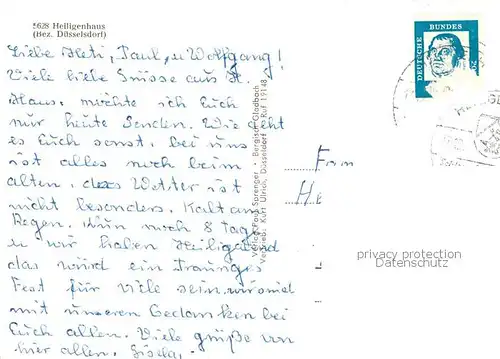 5628 Heiligenhaus
(Bez. Düsseldorf)
Liebe Heti, Paul, u Wolfgang!
Viele liebe Grüsse aus H.
Haus, möchte ich Euch
nur heute senden. Wie geht
es Euch sonst, bei uns
ist alles noch beim
alten, das Wetter ist
nicht besonders. Kalt
Regen. Nun noch 8 tage
u wir haben Heiligabend
das wird ein trauriges
Fest für viele sein, wir sind
mit unseren Gedanken bei
Euch allen. Viele grüße von
hier allen. Gisela.
Verlag Foto Sprenger · Bergisch Gladbach
Vertrieb: Kurt Ullrich, Düsseldorf · Ruf 19148
DEUTSCHE BUNDES
Fam
He
privacy protection
Datenschutz